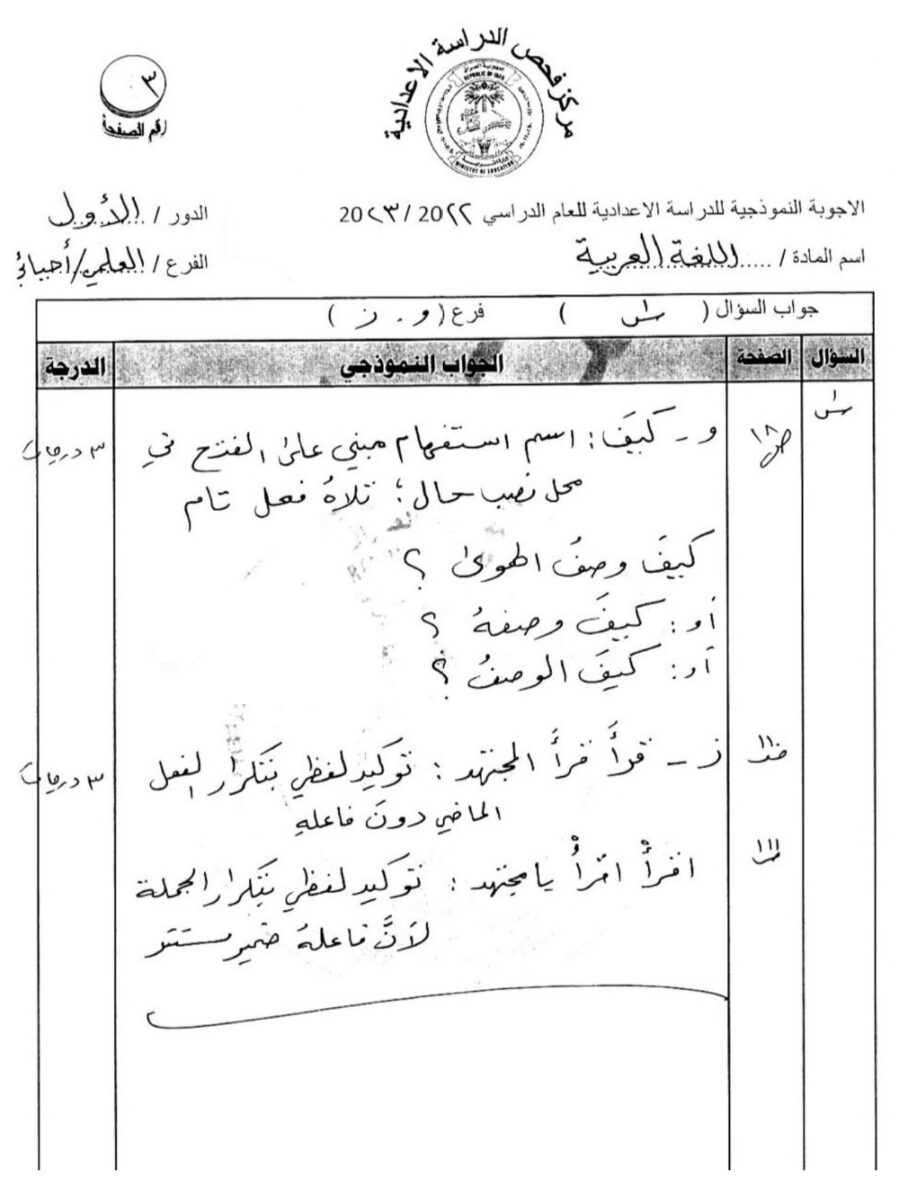 مركز فحص الدراسة الاعدادية
REPUBLIC OF IRAQ
MINISTRY OF EDUCATION
٣
رقم الصفحة
الاجوبة النموذجية للدراسة الاعدادية للعام الدراسي 20٢٢ / 20٢٣
الدور / الأول
اسم المادة / اللغة العربية
الفرع / العلمي/أحيائي
جواب السؤال ( ) فرع ( و . ز )
السؤال الصفحة الجواب النموذجي الدرجة
ص ١٨ و - كيفَ : اسم استفهام مبني على الفتح في ٣ درجات
محل نصب حال ؛ تلاهُ فعل تام
كيفَ وصفُ الهوى ؟
أو : كيفَ وصفهُ ؟
أو : كيفَ الوصفُ ؟
ز - قرأَ قرأَ المجتهد : توكيد لفظي بتكرار الفعل ٣ درجات
الماضي دونَ فاعلهِ
ص ١١١ اقرأْ اقرأْ يا مجتهد : توكيد لفظي بتكرار الجملة
لأنَّ فاعلهُ ضمير مستتر